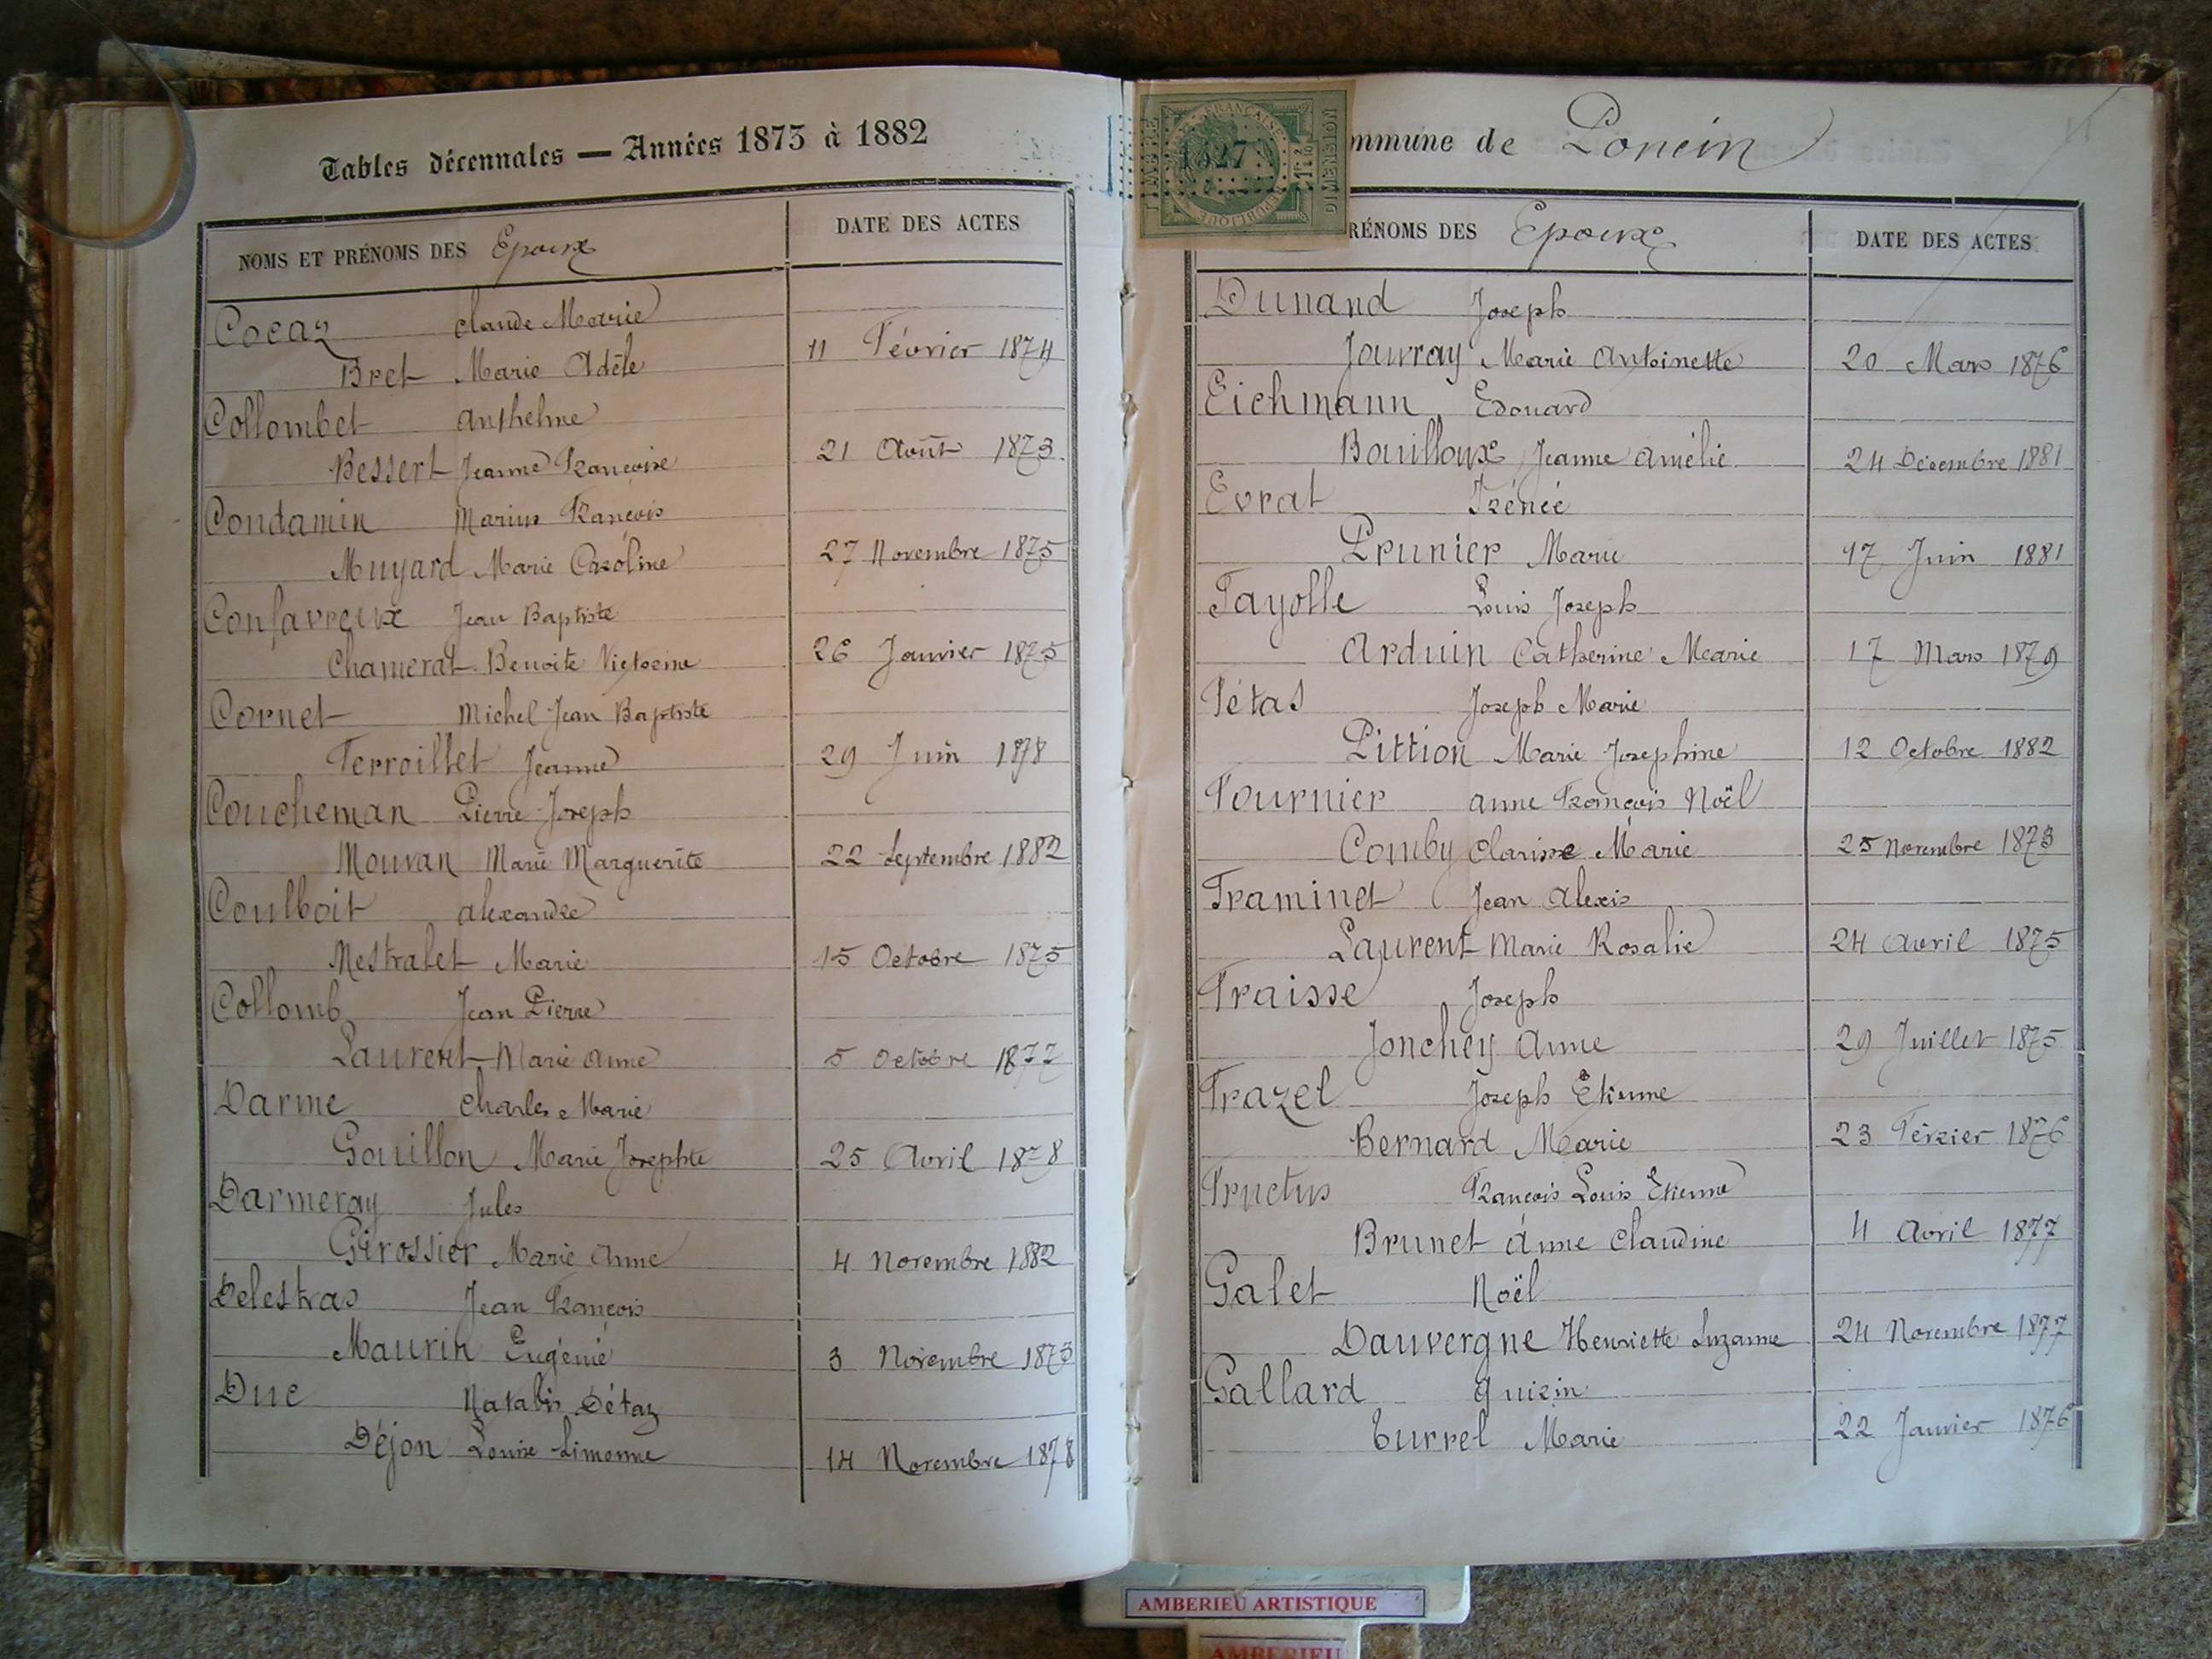 Tables décennales — Années 1873 à 1882
NOMS ET PRÉNOMS DES Epoux DATE DES ACTES
Cocaz Claude Marie
Bret Marie Adèle 11 Février 1874
Collombet Anthelme
Bessert Jeanne Françoise 21 Août 1873
Condamin Marius François
Muyard Marie Caroline 27 Novembre 1875
Confavreux Jean Baptiste
Chamerat Benoite Victorine 26 Janvier 1875
Cornet Michel Jean Baptiste
Ferroillet Jeanne 29 Juin 1878
Coucheman Pierre Joseph
Mouvan Marie Marguerite 22 Septembre 1882
Coulboit Alexandre
Mestralet Marie 15 Octobre 1875
Collomb Jean Pierre
Laurent Marie Anne 5 Octobre 1877
Darme Charles Marie
Gouillon Marie Josephte 25 Avril 1878
Darmeray Jules
Girossier Marie Anne 4 Novembre 1882
Delestras Jean François
Maurin Eugénie 3 Novembre 1873
Duc Natalis Détaz
Déjon Louise Simonne 14 Novembre 1878
TIMBRE
FRANÇAISE
RÉPUBLIQUE
1827
DIMENSION
mmune de Poncin
RÉNOMS DES Epoux DATE DES ACTES
Dunand Joseph
Jouvray Marie Antoinette 20 Mars 1876
Eichmann Edouard
Bouilloux Jeanne Amélie 24 Décembre 1881
Evrat Irénée
Prunier Marie 17 Juin 1881
Fayolle Louis Joseph
Arduin Catherine Marie 17 Mars 1879
Fétas Joseph Marie
Pittion Marie Josephine 12 Octobre 1882
Fournier Anne François Noël
Comby Clarisse Marie 25 Novembre 1873
Framinet Jean Alexis
Laurent Marie Rosalie 24 Avril 1875
Fraisse Joseph
Jonchey Anne 29 Juillet 1875
Frazel Joseph Etienne
Bernard Marie 23 Février 1876
Fructus François Louis Etienne
Brunet Anne Claudine 4 Avril 1877
Galet Noël
Dauvergne Henriette Suzanne 24 Novembre 1877
Gallard
Turrel Marie 22 Janvier 1876
AMBERIEU ARTISTIQUE
AMBERIEU